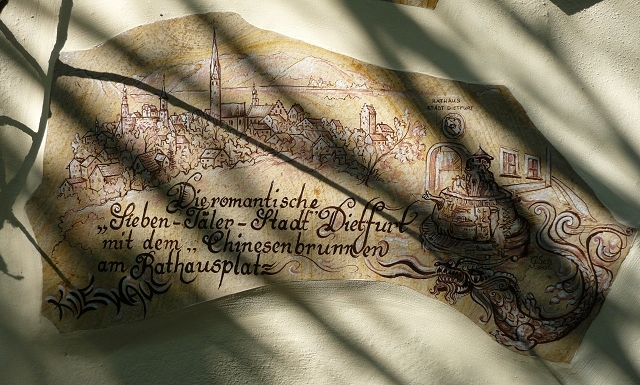 RATHAUS
STADT DIETFURT
Die romantische
„Sieben-Täler-Stadt" Dietfurt
mit dem „Chinesenbrunnen
am Rathausplatz